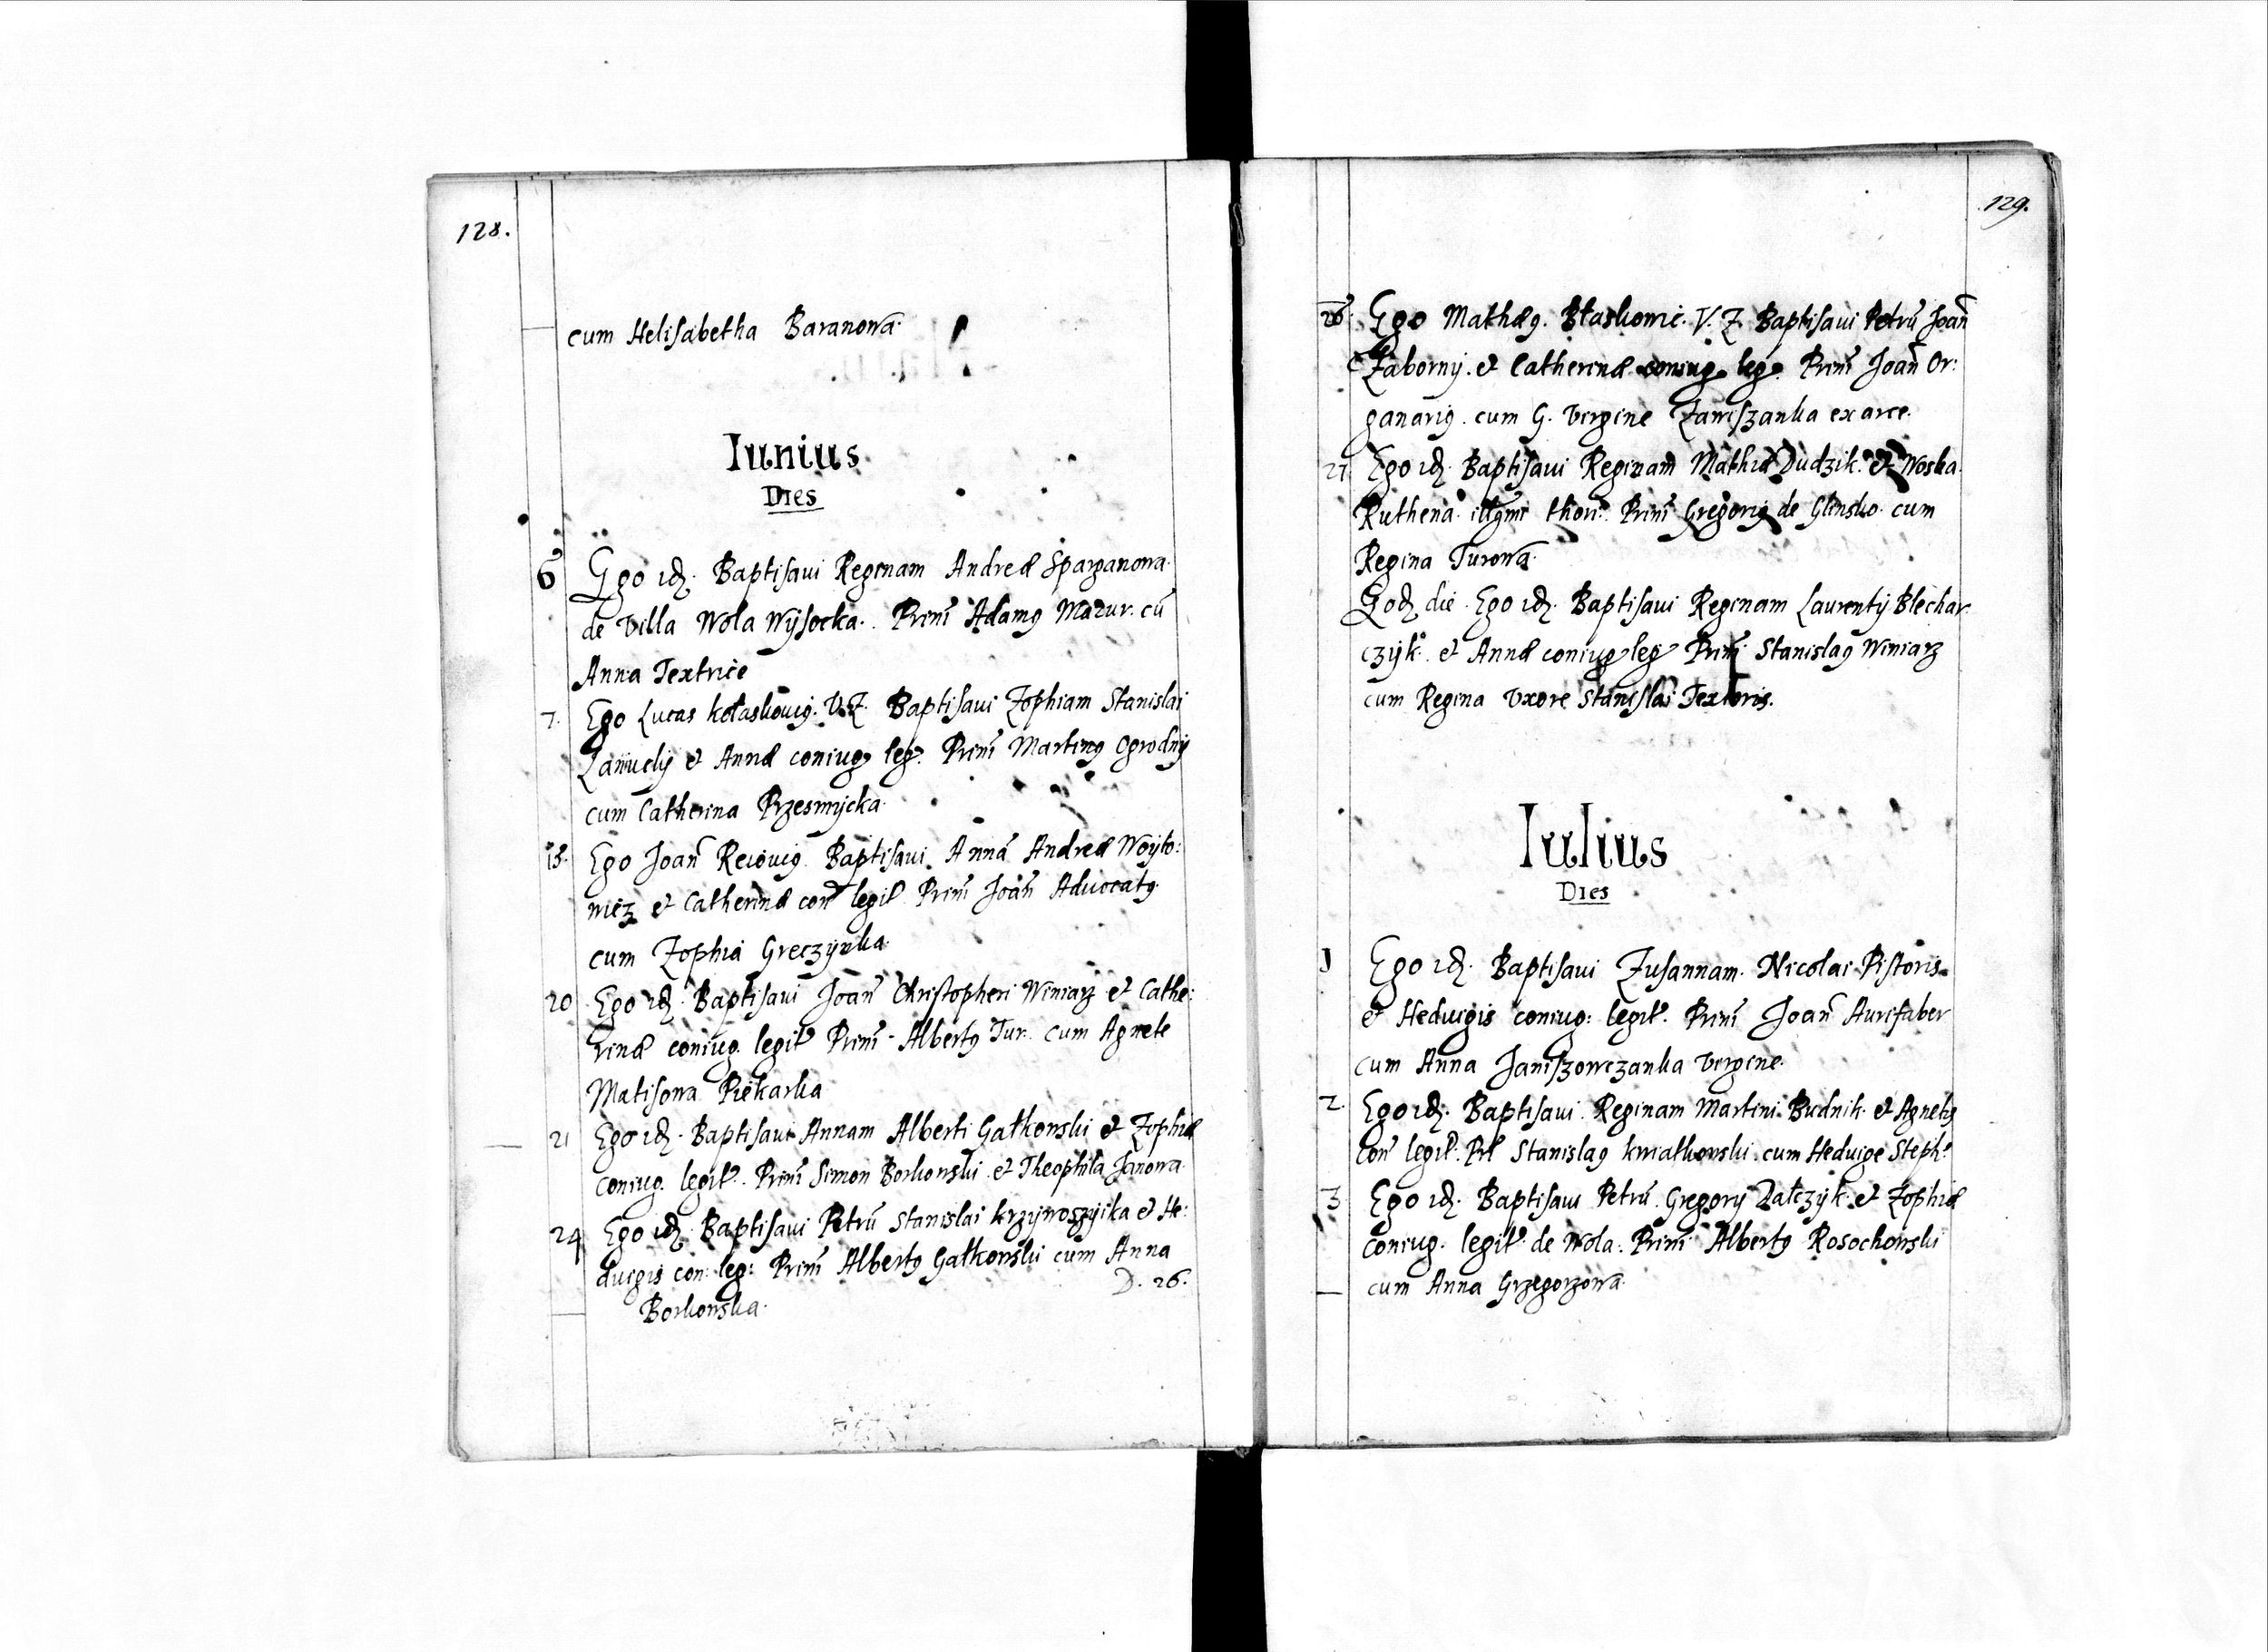 128.
cum Helisabetha Baranowa.
Iunius
Dies
6 Ego idę. Baptisaui Reginam Andreæ Sparganowa.
de Villa Wola Wysocka. Prim̃ Adamꝰ Mazur. cũ
Anna Textrice
7. Ego Lucas Kołaskouiꝰ. V. Z. Baptisaui Zophiam Stanislai
et Annæ coniugꝰ legꝰ. Prim̃ Martinꝰ Ogrodny
cum Catherina Przesmycka.
13. Ego Joañ Baptisaui Annã Andreæ Woyto:
wicz et Catherinæ coñ legitꝰ. Prim̃ Joañ Aduocatꝰ.
cum Zophia Greczynka.
20 Ego idę. Baptisaui Joañ Christopheri Winiarz et Cathe:
rinæ coniug. legitꝰ Prim̃. Albertꝰ Tur. cum Agnete
Matisowa Piekarka
21 Ego idę. Baptisaui Annam Alberti Gałkowski et Zophiæ
coniug. legitꝰ. Prim̃ Simon Borkowski et Theophila Janowa.
24 Ego idę. Baptisaui Petrũ Stanislai krzywoszyika et He:
duigis con: leg: Prim̃ Albertꝰ Gałkowski cum Anna
Borkowska.
D. 26.
129.
26. Ego Mathæꝰ. Błaskowic. V. Z. Baptisaui Petrũ Joañ
Zaborny. et Catherinæ coniugꝰ legꝰ. Prim̃ Joañ Or:
ganariꝰ. cum G. Virgine Janiszanka ex arce.
27 Ego idę. Baptisaui Reginam Mathiæ Dudzik. et Woska.
Ruthena. thoriꝰ. Prim̃ Gregoriꝰ de Glinsko. cum
Regina Turowa.
Eodę die. Ego idę. Baptisaui Reginam Laurentij Blechar
czyk. et Annæ coniugꝰ legꝰ Prim̃. Stanislaꝰ Winiarz
cum Regina Vxore Stanislai Textoris.
Iulius
Dies
1 Ego idę. Baptisaui Zusannam. Nicolai Pistoris
et Heduigis coniug: legitꝰ. Prim̃ Joañ Aurifaber
cum Anna Janiszowczanka Virgine.
2. Ego idę. Baptisaui. Reginam Martini Budnik. et Agnetis
coñ legitꝰ. Stanislaꝰ kwiatkowski. cum Heduige Stephꝰ
3 Ego idę. Baptisaui Petrũ. Gregorij Zatczyk. et Zophiæ
coniug. legitꝰ. de Wola. Prim̃ Albertꝰ Rosochowski
cum Anna Grzegorzowa.